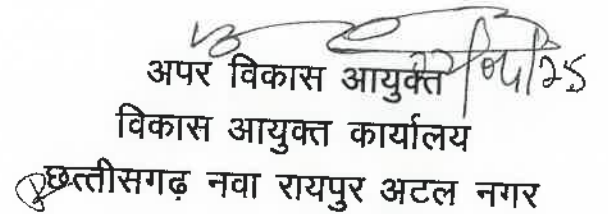 22/04/25
अपर विकास आयुक्त
विकास आयुक्त कार्यालय
छत्तीसगढ़ नवा रायपुर अटल नगर